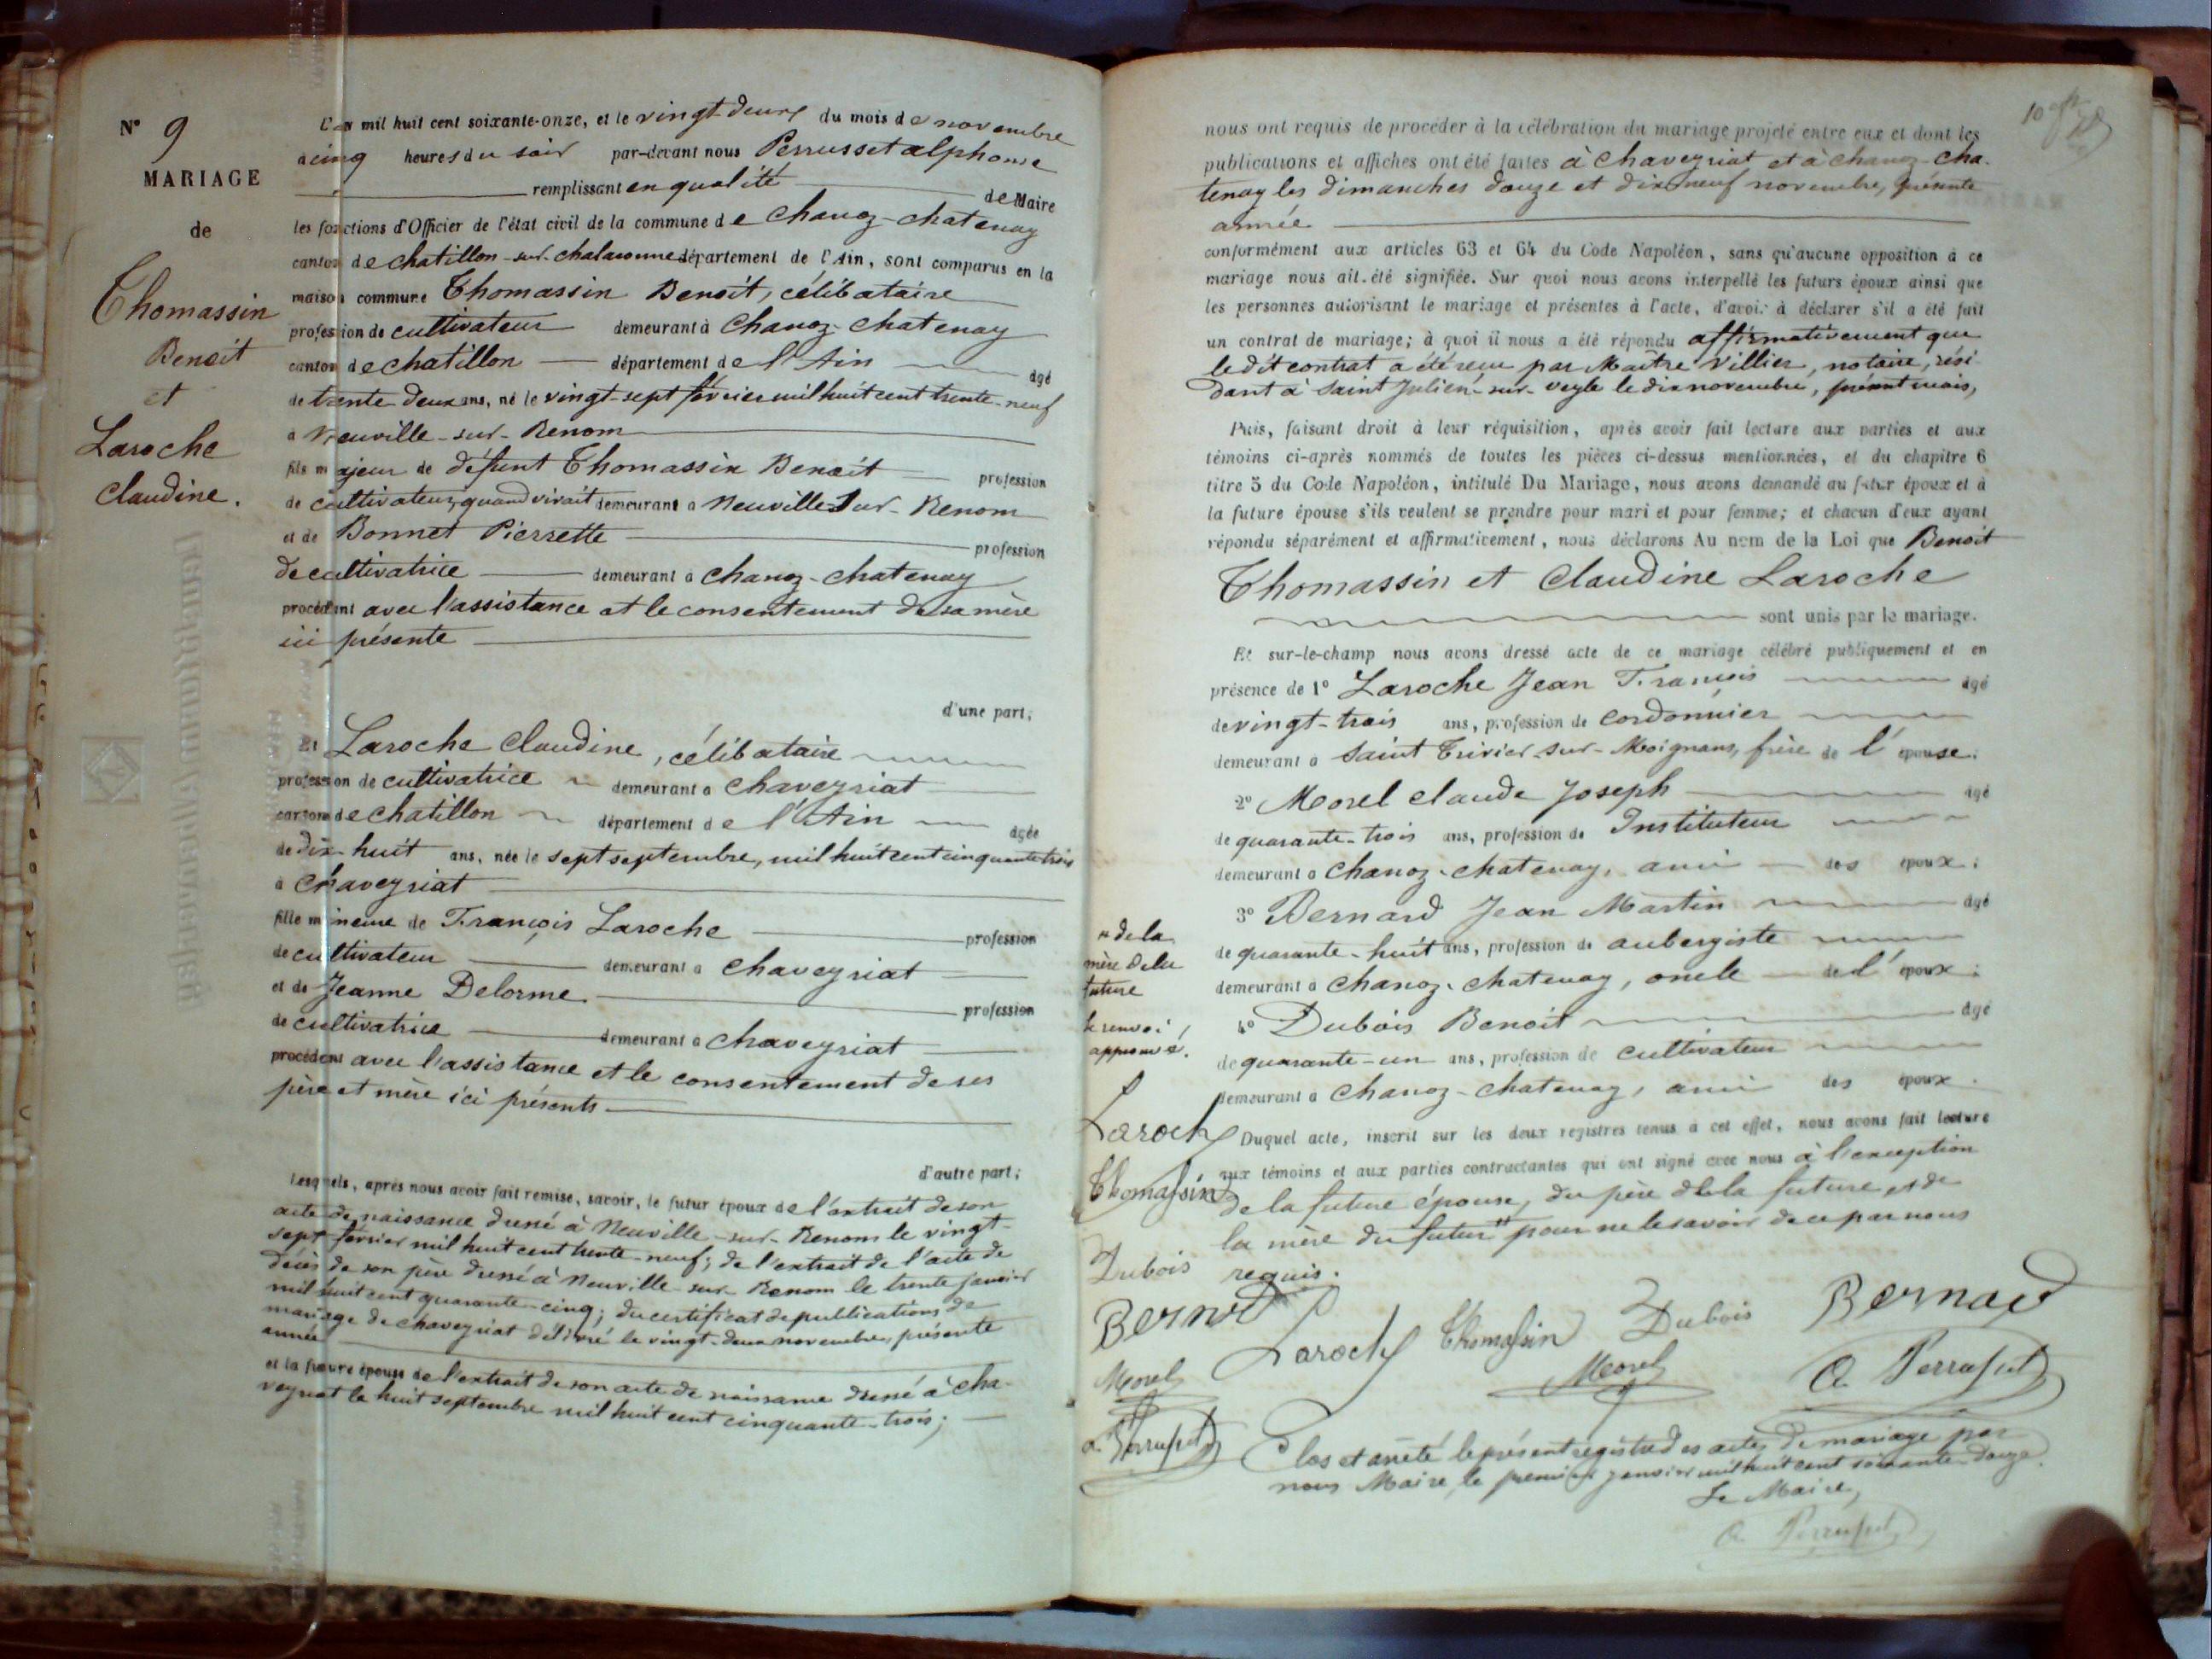 N° 9
MARIAGE
de
Thomassin
Benoit
et
Laroche
Claudine.
L'an mil huit cent soixante-onze, et le vingt-deux du mois de novembre
à cinq heures du soir par-devant nous Perrusset alphonse
remplissant en qualité de Maire
les fonctions d'Officier de l'état civil de la commune de Chanoz-chatenay
canton de chatillon-sur-chalaronne département de l'Ain, sont comparus en la
maison commune Thomassin Benoit, célibataire
profession de cultivateur demeurant à Chanoz-chatenay
canton de chatillon département de l'Ain âgé
de trente deux ans, né le vingt-sept février mil huit cent trente-neuf
à Neuville-sur-Renom
fils majeur de défunt Thomassin Benoit profession
de cultivateur, quand vivait demeurant à Neuville-sur-Renom
et de Bonnet Pierrette profession
de cultivatrice demeurant à chanoz-chatenay
procédant avec l'assistance et le consentement de sa mère
ici présente
d'une part;
Et Laroche Claudine, célibataire
profession de cultivatrice demeurant à chaveyriat
canton de chatillon département de l'Ain âgée
de dix-huit ans, née le sept septembre, mil huit cent cinquante trois
à chaveyriat
fille mineure de François Laroche profession
de cultivateur demeurant à chaveyriat
et de Jeanne Delorme profession
de cultivatrice demeurant à chaveyriat
procédant avec l'assistance et le consentement de ses
père et mère ici présents
d'autre part;
Lesquels, après nous avoir fait remise, savoir, le futur époux de l'extrait de son
acte de naissance dressé à Neuville-sur-Renom le vingt-
sept février mil huit cent trente-neuf; de l'extrait de l'acte de
décès de son père dressé à Neuville-sur-Renom le trente janvier
mil huit cent quarante-cinq; du certificat de publications de
mariage de chaveyriat délivré le vingt-deux novembre, présente
année
et la future épouse de l'extrait de son acte de naissance dressé à cha-
veyriat le huit septembre mil huit cent cinquante-trois;
10
nous ont requis de procéder à la célébration du mariage projeté entre eux et dont les
publications et affiches ont été faites à chaveyriat et à chanoz-cha-
tenay les dimanches douze et dix neuf novembre, présente
année
conformément aux articles 63 et 64 du Code Napoléon, sans qu'aucune opposition à ce
mariage nous ait été signifiée. Sur quoi nous avons interpellé les futurs époux ainsi que
les personnes autorisant le mariage et présentes à l'acte, d'avoir à déclarer s'il a été fait
un contrat de mariage; à quoi il nous a été répondu affirmativement que
le dit contrat a été reçu par Maître Villier, notaire, rési-
dant à Saint Julien-sur-veyle le dix novembre, présent mois,
Puis, faisant droit à leur réquisition, après avoir fait lecture aux parties et aux
témoins ci-après nommés de toutes les pièces ci-dessus mentionnées, et du chapitre 6
titre 5 du Code Napoléon, intitulé Du Mariage, nous avons demandé au futur époux et à
la future épouse s'ils veulent se prendre pour mari et pour femme; et chacun d'eux ayant
répondu séparément et affirmativement, nous déclarons Au nom de la Loi que Benoit
Thomassin et Claudine Laroche
sont unis par le mariage.
Et sur-le-champ nous avons dressé acte de ce mariage célébré publiquement et en
présence de 1° Laroche Jean François âgé
de vingt-trois ans, profession de cordonnier
demeurant à Saint Trivier-sur-Moignans, frère de l'épouse;
2° Morel Claude Joseph âgé
de quarante-trois ans, profession de Instituteur
demeurant à chanoz-chatenay, ami des époux;
3° Bernard Jean Martin âgé
de quarante-huit ans, profession de aubergiste
demeurant à chanoz-chatenay, oncle de l'époux;
4° Dubois Benoit âgé
de quarante-un ans, profession de cultivateur
demeurant à chanoz-chatenay, ami des époux.
Duquel acte, inscrit sur les deux registres tenus à cet effet, nous avons fait lecture
aux témoins et aux parties contractantes qui ont signé avec nous à l'exception
de la future épouse, du père de la future et de
la mère du futur " pour ne le savoir de ce par nous
requis.
" de la
mère de la
future
le renvoi
approuvé.
Laroche
Thomassin
Dubois
Bernard
Morel
a. Perrusset
Laroche Thomassin Dubois Bernard
Morel A Perrusset
Clos et arrêté le présent registre des actes de mariage par
nous Maire, le premier janvier mil huit cent soixante-douze.
Le Maire,
A Perrusset